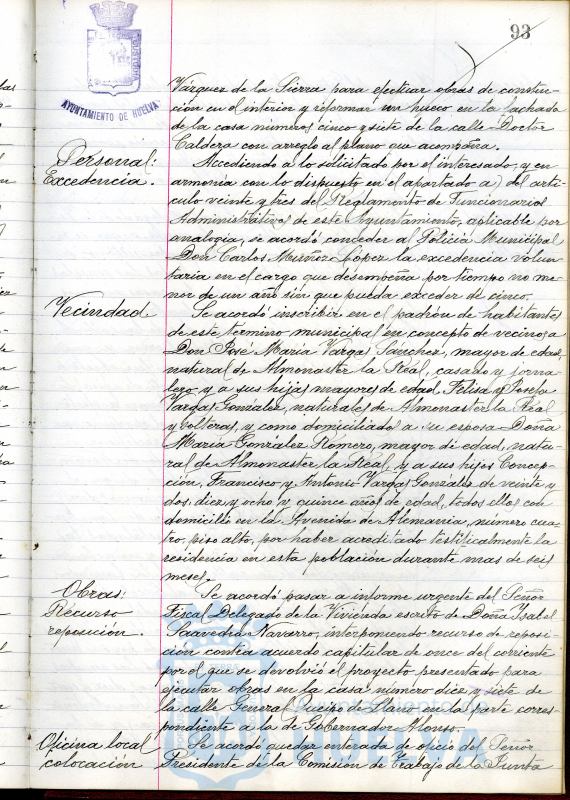 93
AYUNTAMIENTO DE HUELVA
Vázquez de la Tierra para efectuar obras de construc-
ción en el interior y reformar un hueco en la fachada
de la casa números cinco y siete de la calle Doctor
Caldera con arreglo al plano que acompaña.
Personal:
Excedencia.
Accediendo a lo solicitado por el interesado, y en
armonía con lo dispuesto en el apartado a) del artí-
culo veinte y tres del Reglamento de Funcionarios
Administrativos de este Ayuntamiento, aplicable por
analogía, se acordó conceder al Policía Municipal
Don Carlos Muñoz López la excedencia volun-
taria en el cargo que desempeña por tiempo no me-
nor de un año sin que pueda exceder de cinco.
Vecindad.
Se acordó inscribir en el padrón de habitantes
de este término municipal en concepto de vecinos a
Don José María Vargas Sánchez, mayor de edad,
natural de Almonaster la Real, casado y jorna
lero y a sus hijas mayores de edad, Felisa y Josefa
Vargas González, naturales de Almonaster la Real
y solteras, y como domiciliados a su esposa Doña
María González Romero, mayor de edad, natu-
ral de Almonaster la Real, y a sus hijos Concep-
ción, Francisco y Antonio Vargas Gonzalez de veinte y
dos, diez y ocho y quince años de edad, todos ellos con
domicilio en la Avenida de Alemania, número cua-
tro, piso alto, por haber acreditado testificalmente la
residencia en esta población durante mas de seis
meses.
Obras:
Recurso
reposición.
Se acordó pasar a informe urgente del Señor
Fiscal Delegado de la Vivienda escrito de Doña Isabel
Saavedra Navarro, interponiendo recurso de reposi-
ción contra acuerdo capitular de once del corriente
por el que se devolvió el proyecto presentado para
ejecutar obras en la casa número diez y siete de
la calle General Queipo de Llano en la parte corres-
pondiente a la de Gobernador Alonso.
Oficina local
colocación
Se acordó quedar enterada de oficio del Señor
Presidente de la Comisión de Trabajo de la Junta